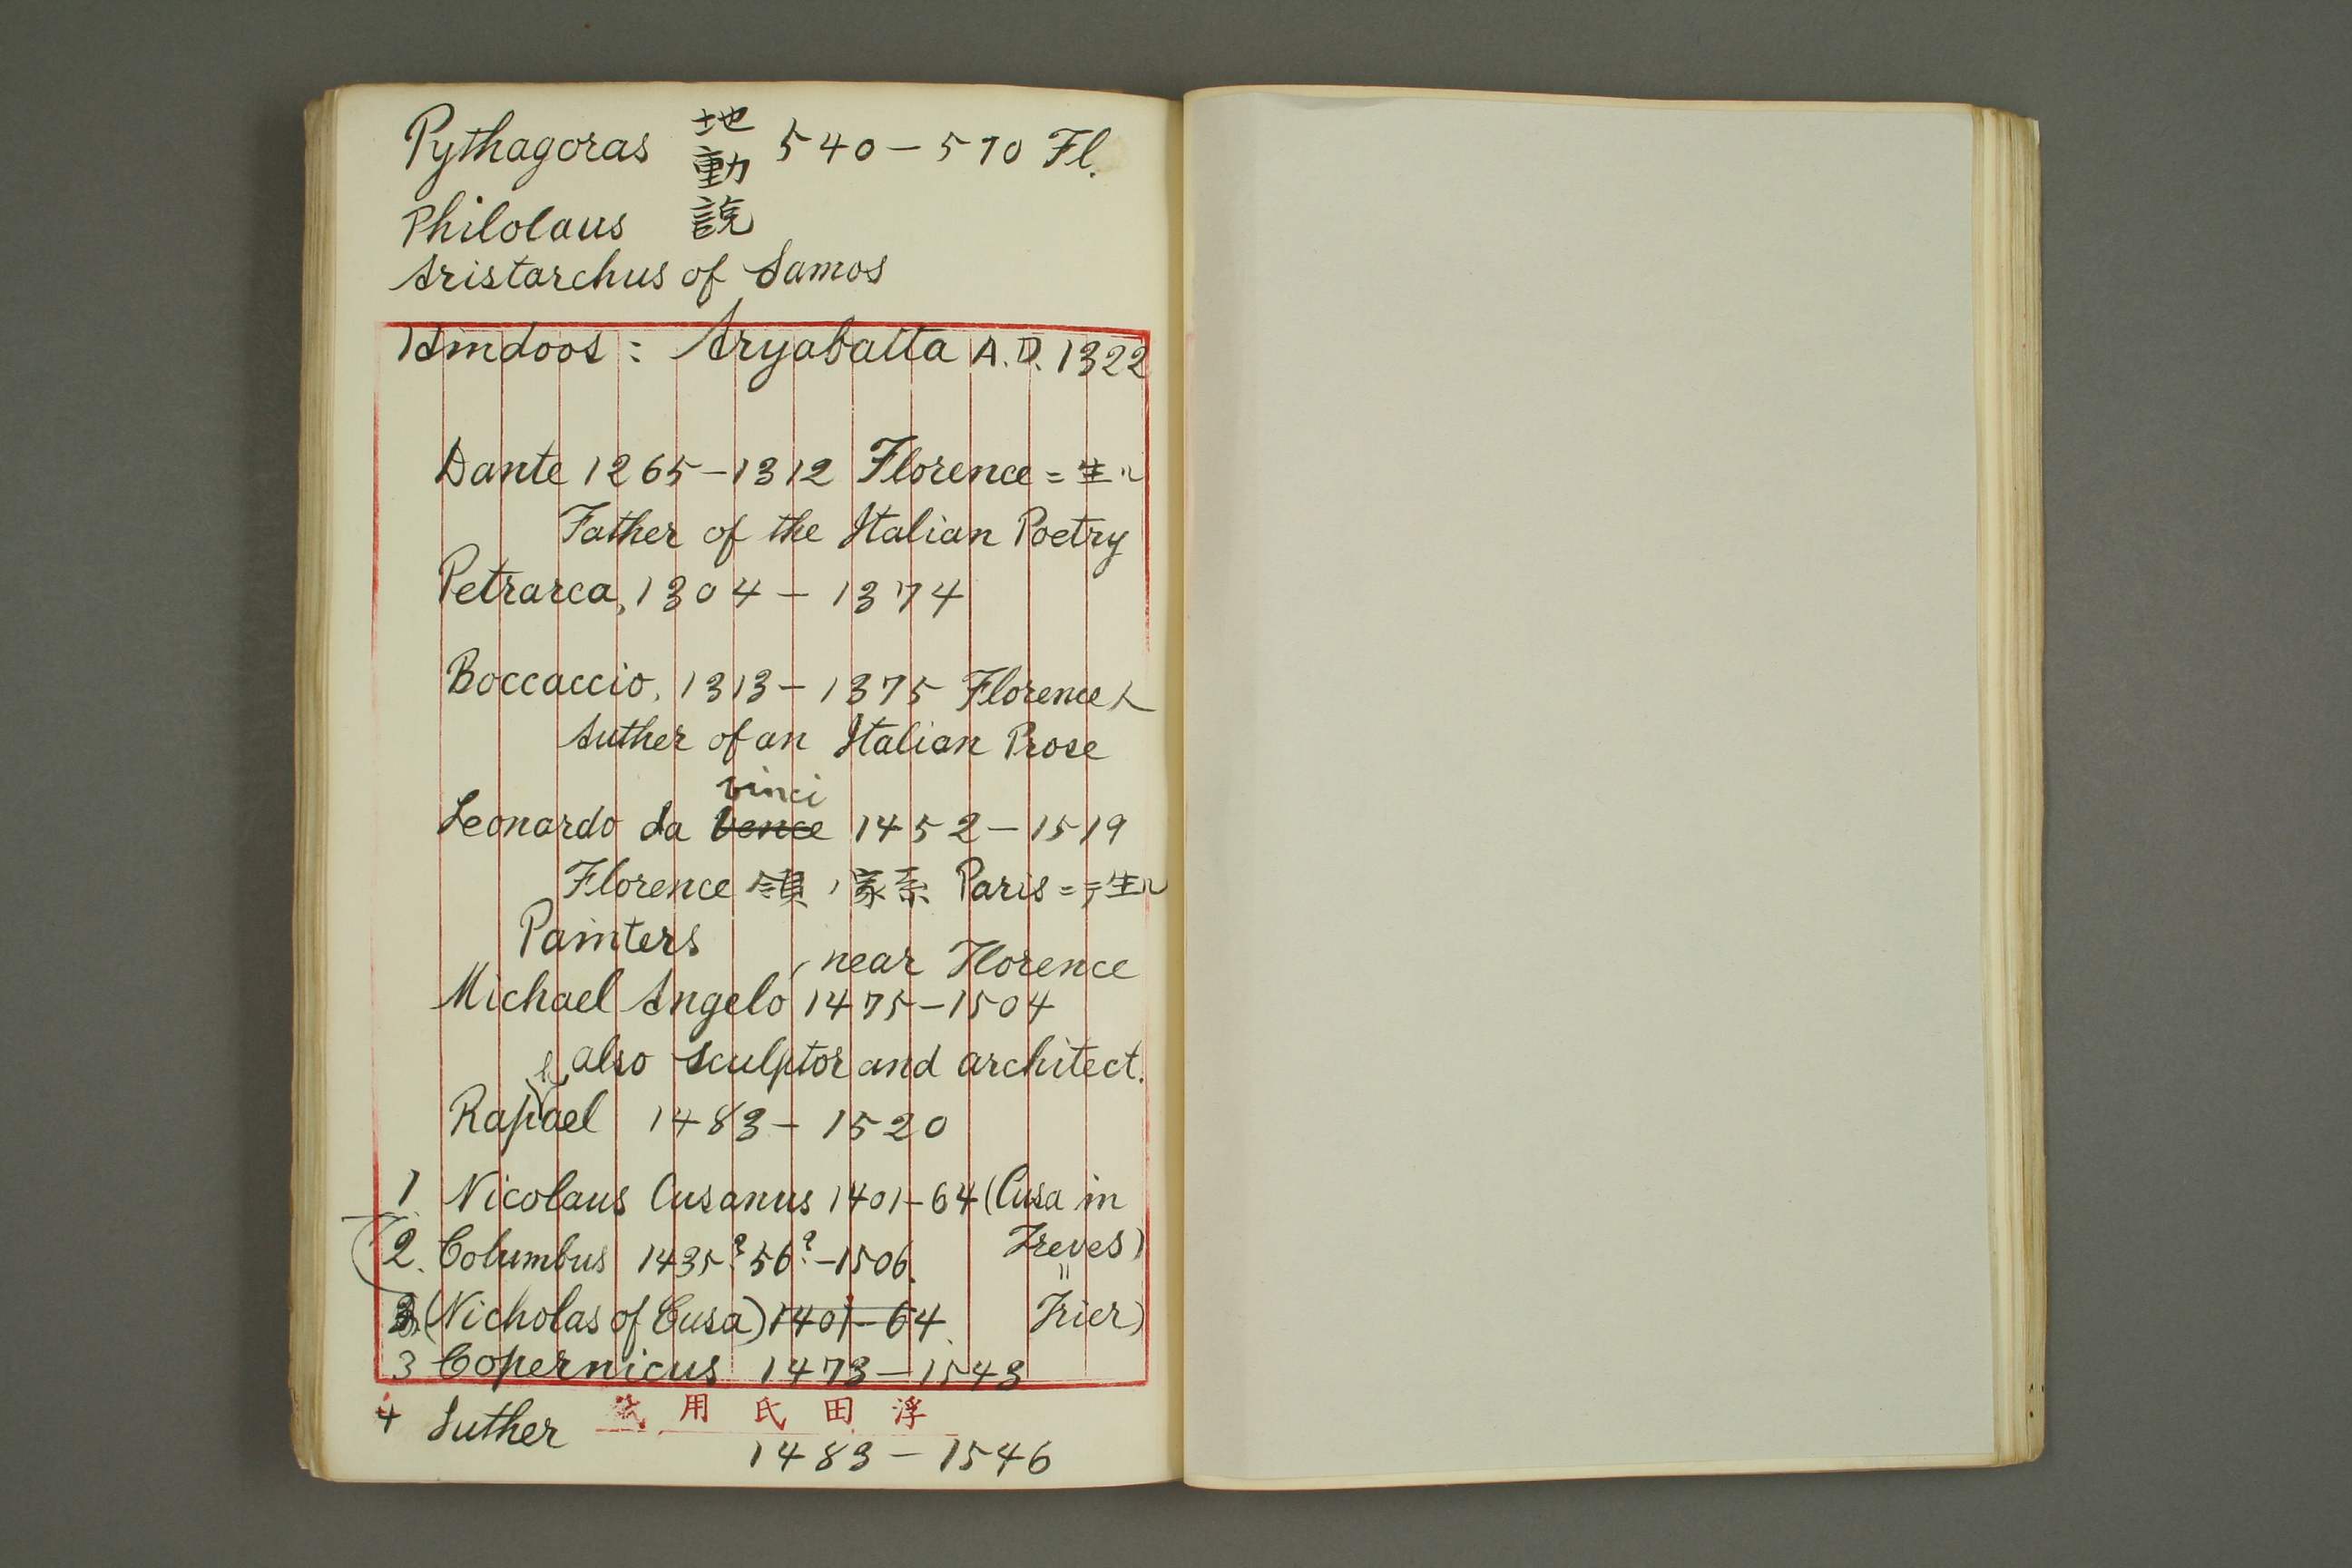 Pythagoras 地動説 540-510 Fl.
Philolaus
Aristarchus of Samos
Hindoos: Aryabatta A.D. 1322
Dante 1265-1312 Florence ニ生ル
Father of the Italian Poetry
Petrarca, 1304-1374
Boccaccio, 1313-1375 Florence人
Auther of an Italian Prose
vinci
Leonardo da vence 1452-1519
Florence領ノ家系 Paris ニテ生ル
Painters
near Florence
Michael Angelo 1475-1504
also sculptor and architect.
Raphael 1483-1520
1 Nicolaus Cusanus 1401-64 (Cusa in
Treves)
2. Columbus 1435? 56?-1506.
〃
(Nicholas of Cusa) 1401-64 Trier)
3 Copernicus 1473-1543
浮田氏用紙
4 Luther
1483-1546